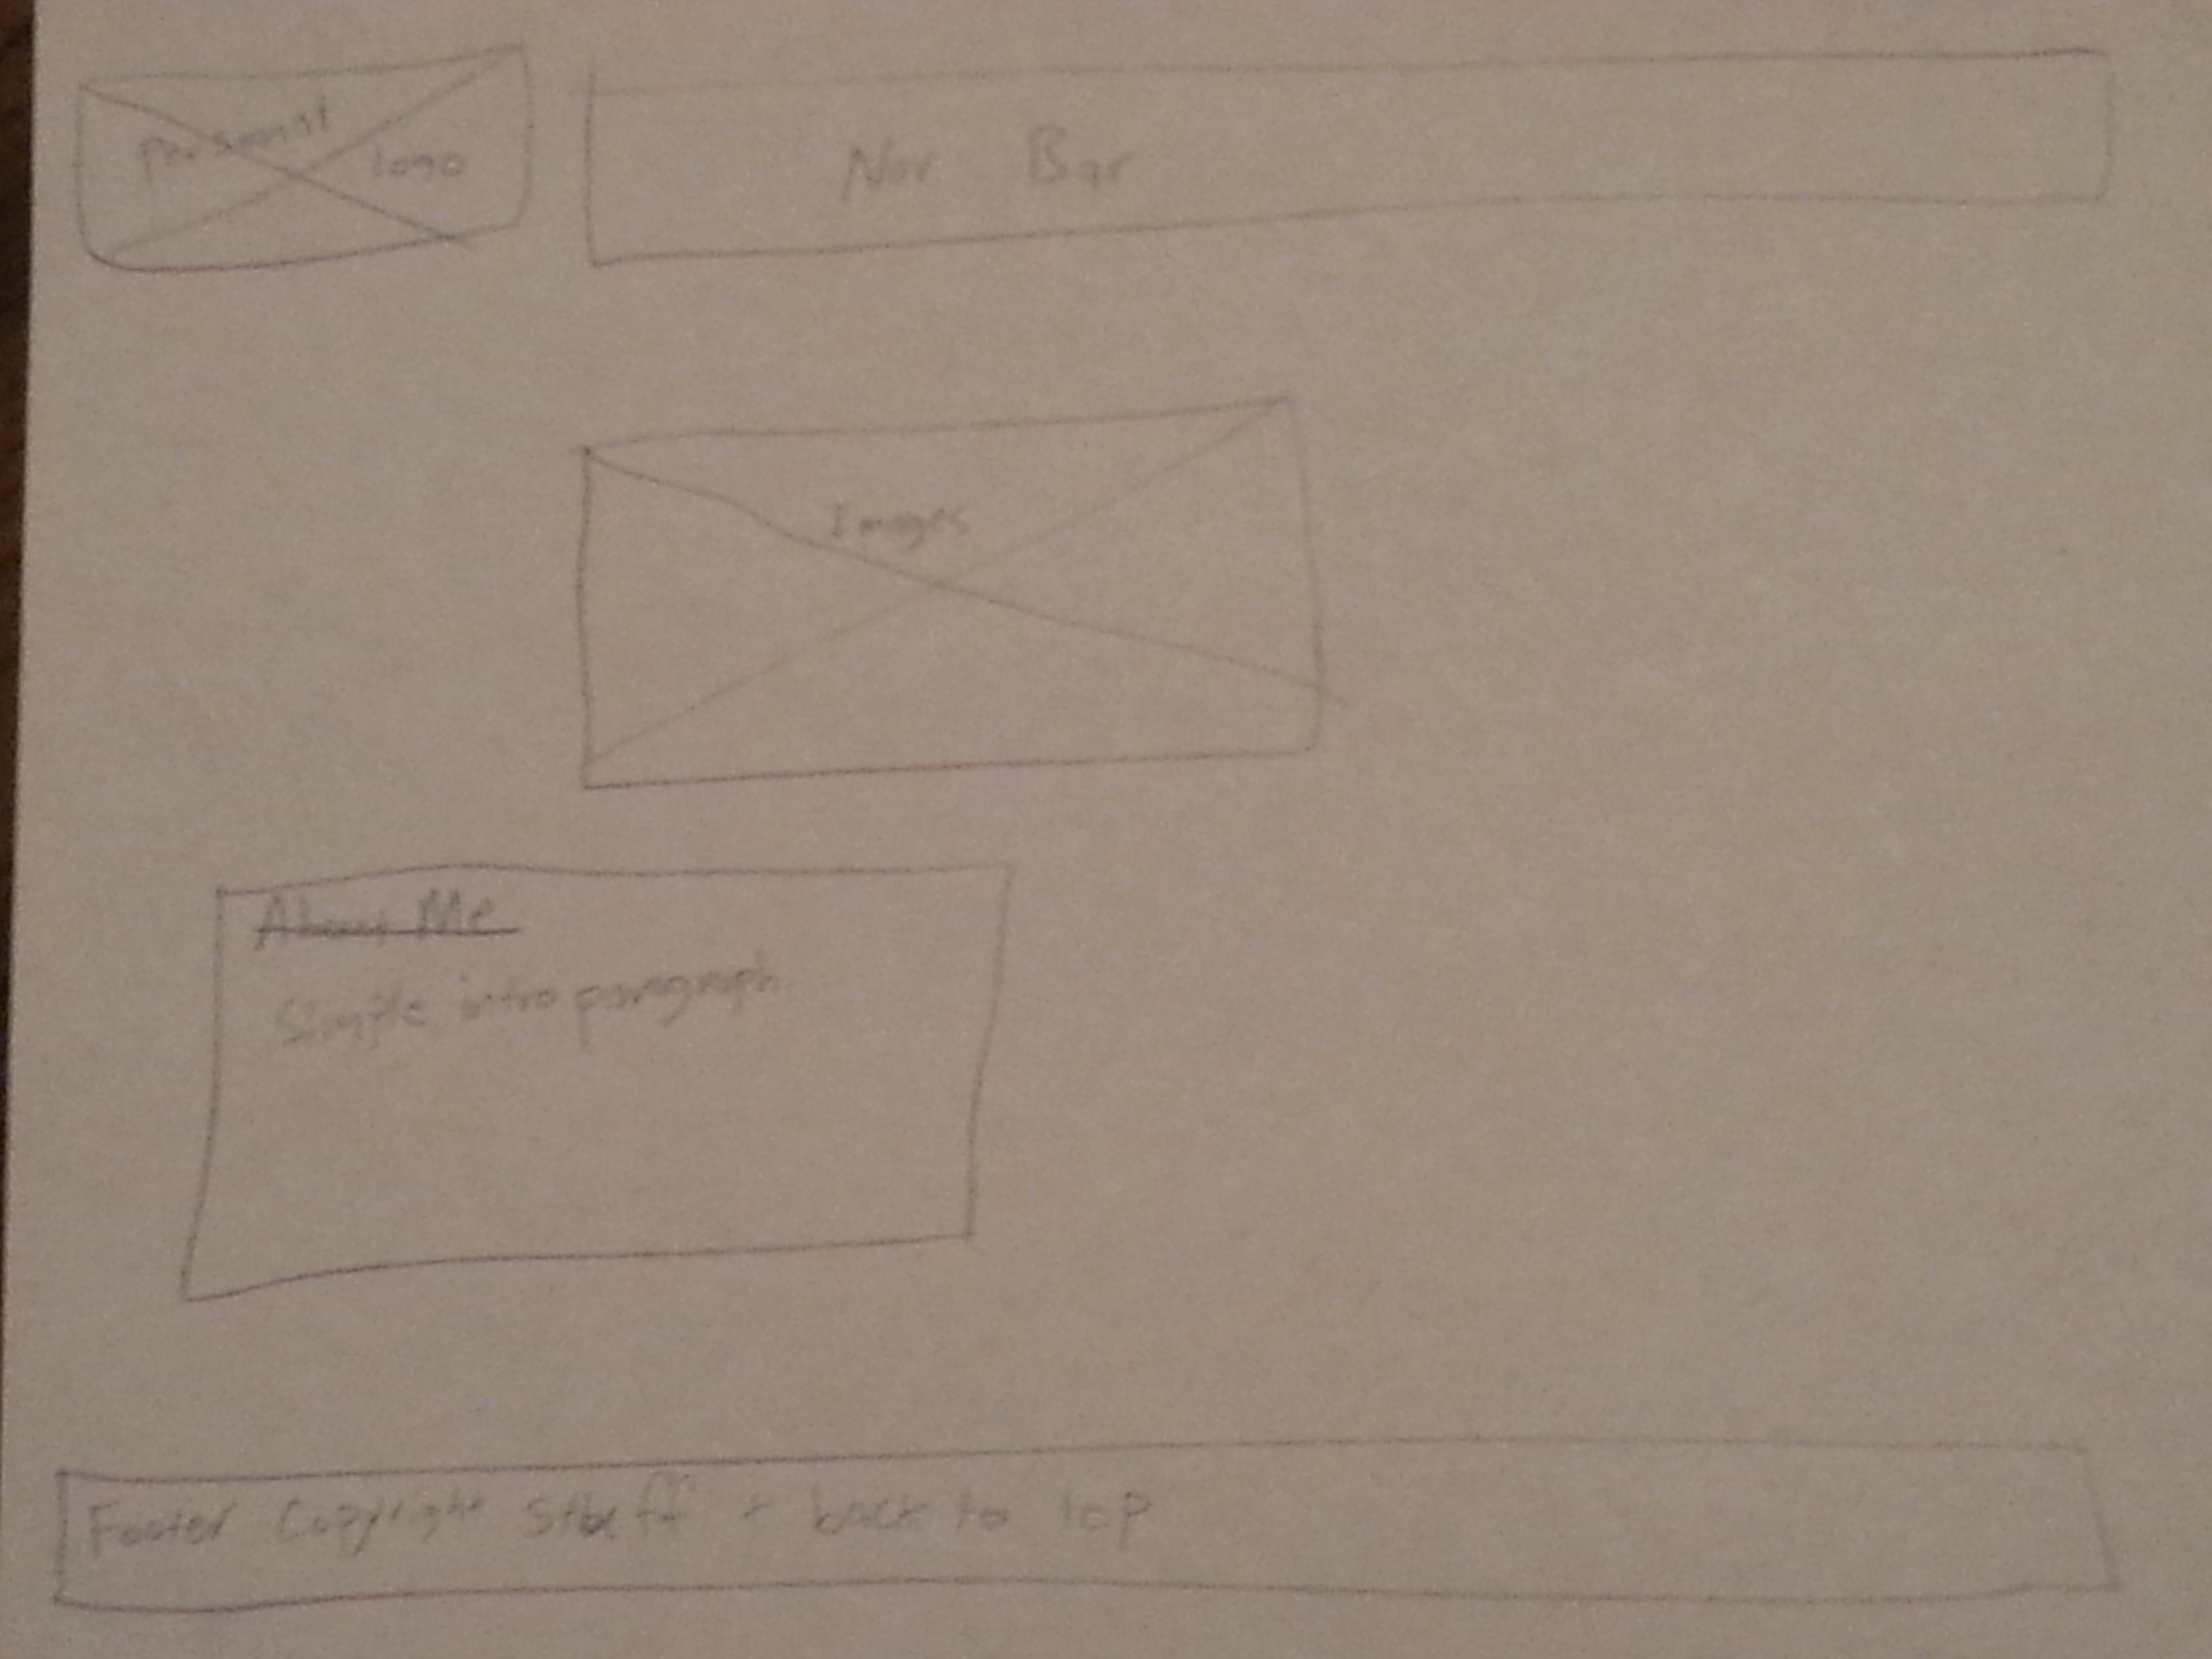 personal
logo
Nav Bar
Images
About Me
Simple intro paragraph
Footer Copyright stuff & back to top